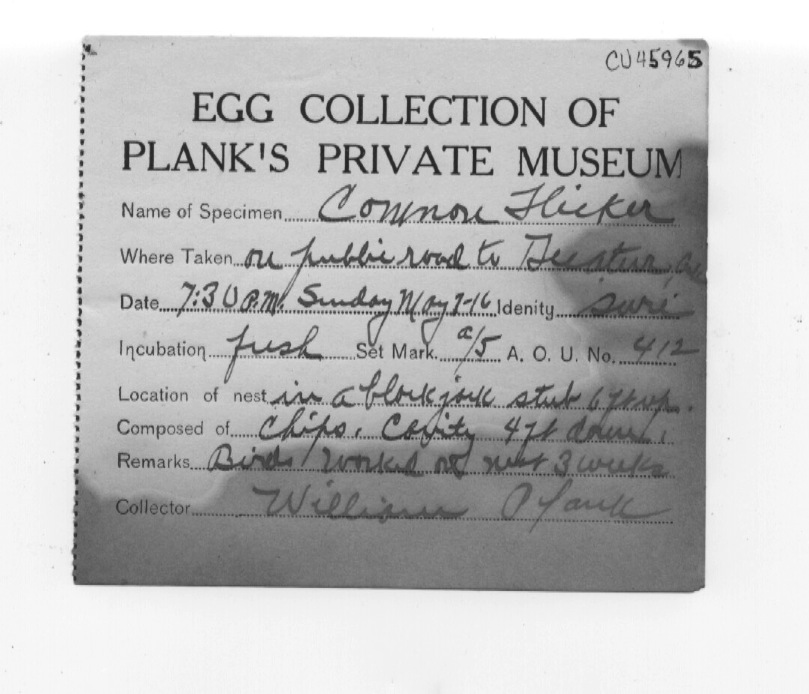 CU45965
EGG COLLECTION OF
PLANK'S PRIVATE MUSEUM
Name of Specimen Common Flicker
Where Taken on public road to
Date 7:30 P.M. Sunday May 7-16 Idenity sure
Incubation fresh Set Mark a/5 A. O. U. No. 412
Location of nest in a blackjack stub 6 ft up.
Composed of Chips. Cavity 4 ft down.
Remarks Birds worked on nest 3 weeks
Collector William Plank